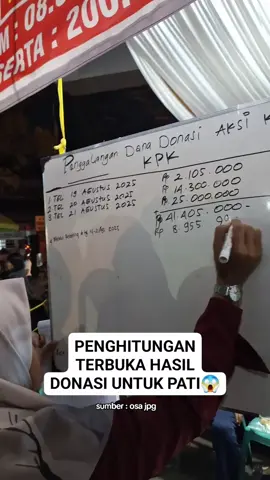 : 08.
SERTA : 200.
Penggalangan Dana Donasi AKSI K
KPK
1 TGL 19 AGUSTUS 2025 Rp 2.105.000
2 TGL 20 AGUSTUS 2025 Rp 14.300.000
3 TGL 21 AGUSTUS 2025 Rp 25.000.000
Rp 41.405.000-
Rp 8.955
2025
PENGHITUNGAN
TERBUKA HASIL
DONASI UNTUK PATI😱
sumber : osa jpg